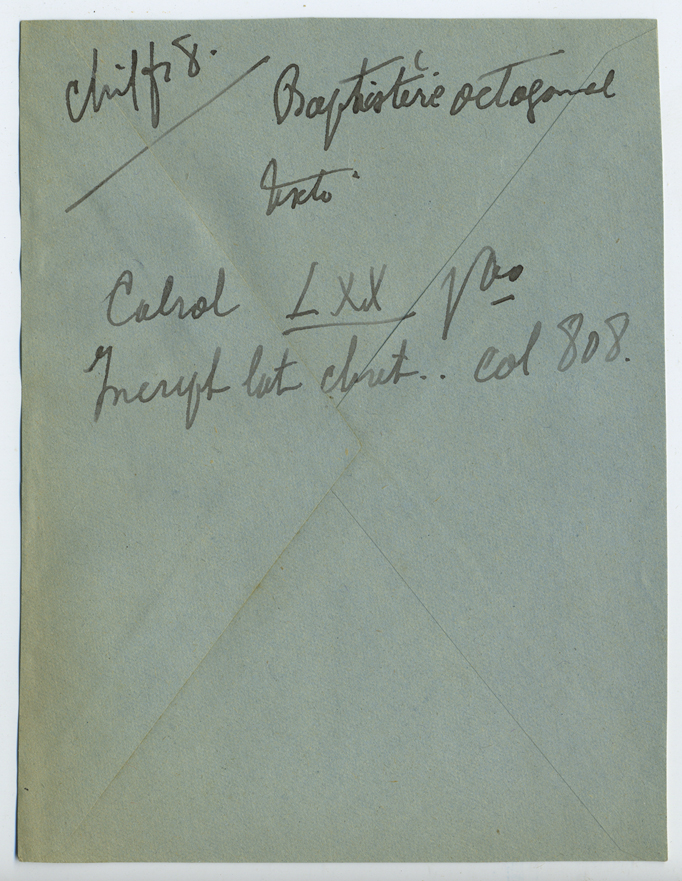 Chiffr 8.
Baptistère octogonal
texte
Cabrol LXX
Inscript lat chret.. col 808.